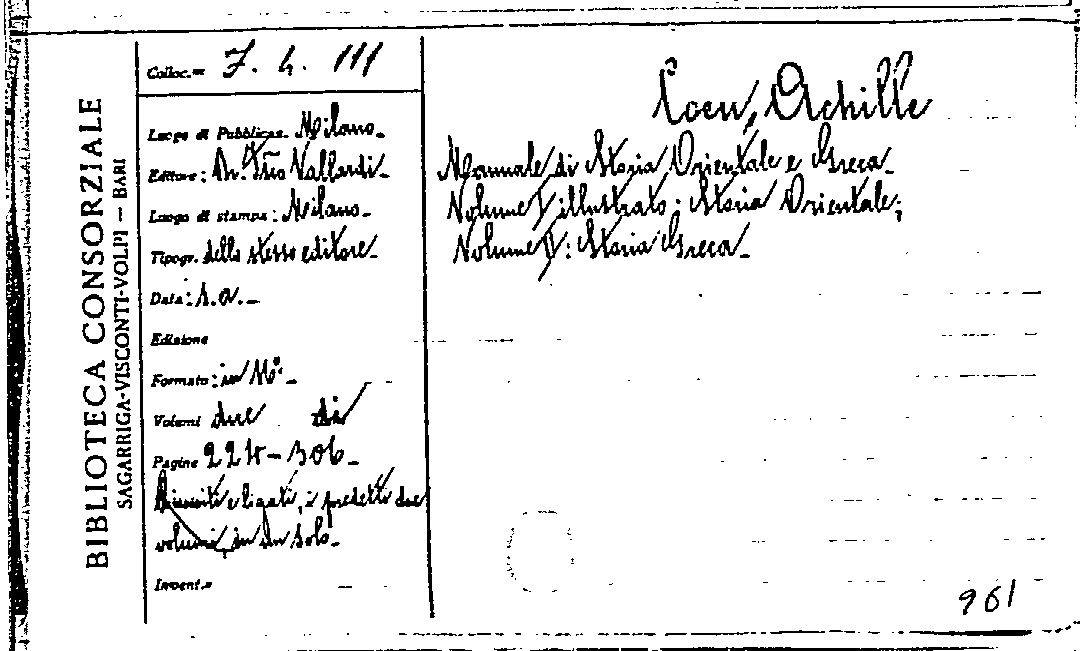 BIBLIOTECA CONSORZIALE
SAGARRIGA-VISCONTI-VOLPI — BARI
Colloc.= 7. 4. 111
Luogo di Pubblicaz. Milano.
Editore: Dr. Vallardi.
Luogo di stampa: Milano.
Tipogr. dello stesso editore.
Data: s.a.
Edizione
Formato: in
Volumi due di
Pagine 224-306
Riuniti e ligati, i predetti due
volumi, in un solo.
Invent.=
Coen, Achille
Manuale di Storia Orientale e Greca.
Volume I illustrato: Storia Orientale;
Volume II: Storia Greca.
961